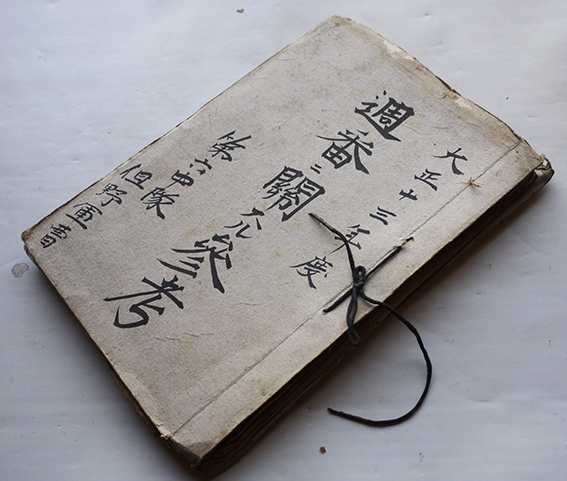 大正十三年度
週番ニ關スル參考
第六中隊
但野軍曹